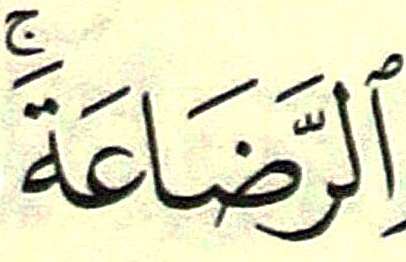 ٱلرَّضَاعَةَۚ